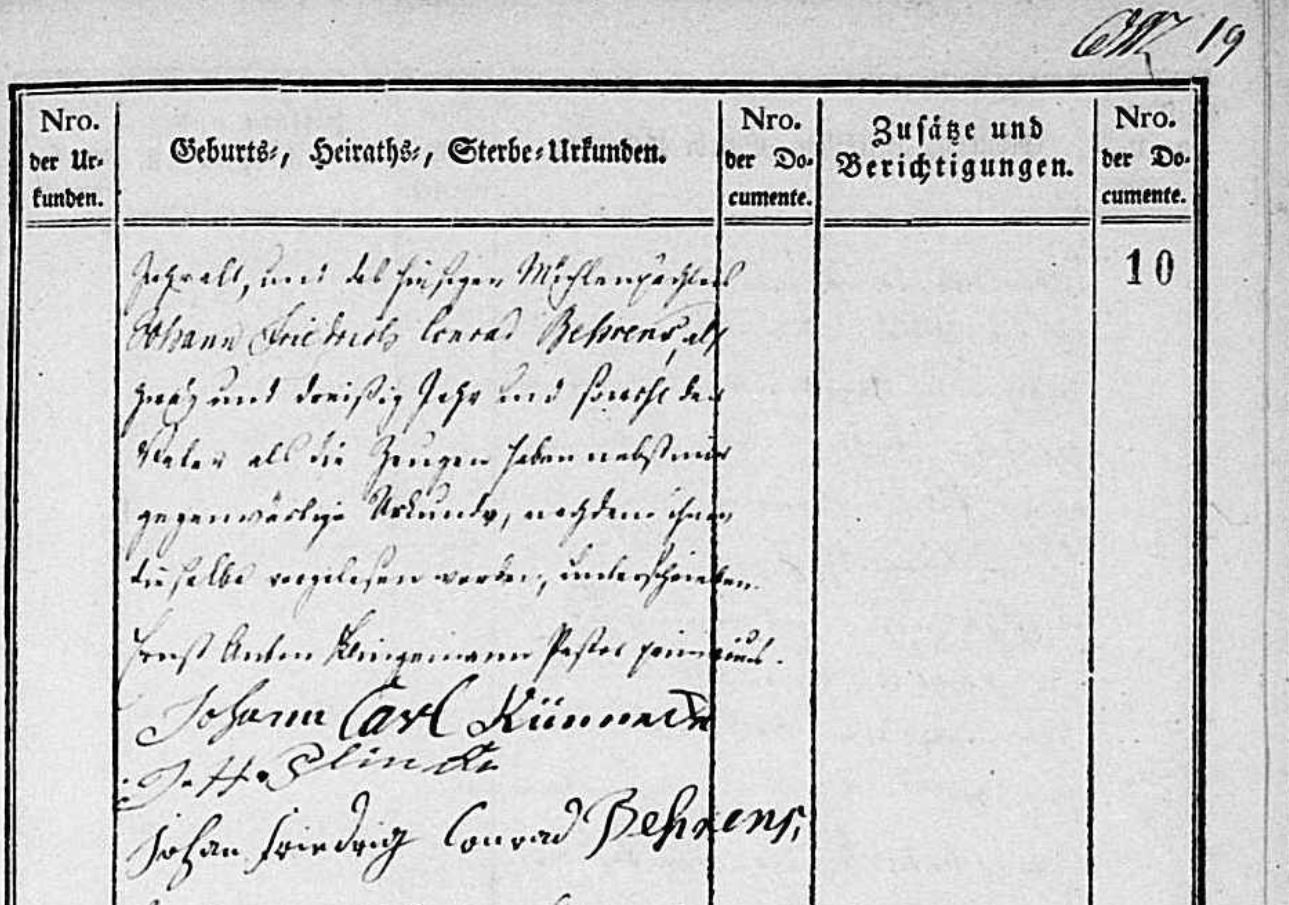 19
Nro.
der Ur-
kunden.
Geburts-, Heiraths-, Sterbe-Urkunden.
Nro.
der Do-
cumente.
Zusätze und
Berichtigungen.
Nro.
der Do-
cumente.
10
Jahr alt, und des hiesigen Mühlenpächters
Johann Friedrich Conrad Behrens, alt
zwey und dreißig Jahr und sowohl der
Vater als die Zeugen haben nebst mir
gegenwärtige Urkunde, nachdem ihnen
dieselbe vorgelesen worden, unterschrieben.
Ernst Anton Klingemann Pastor primarius.
Johann Carl Künne
J. H.
Johan Friedrig Conrad Behrens,